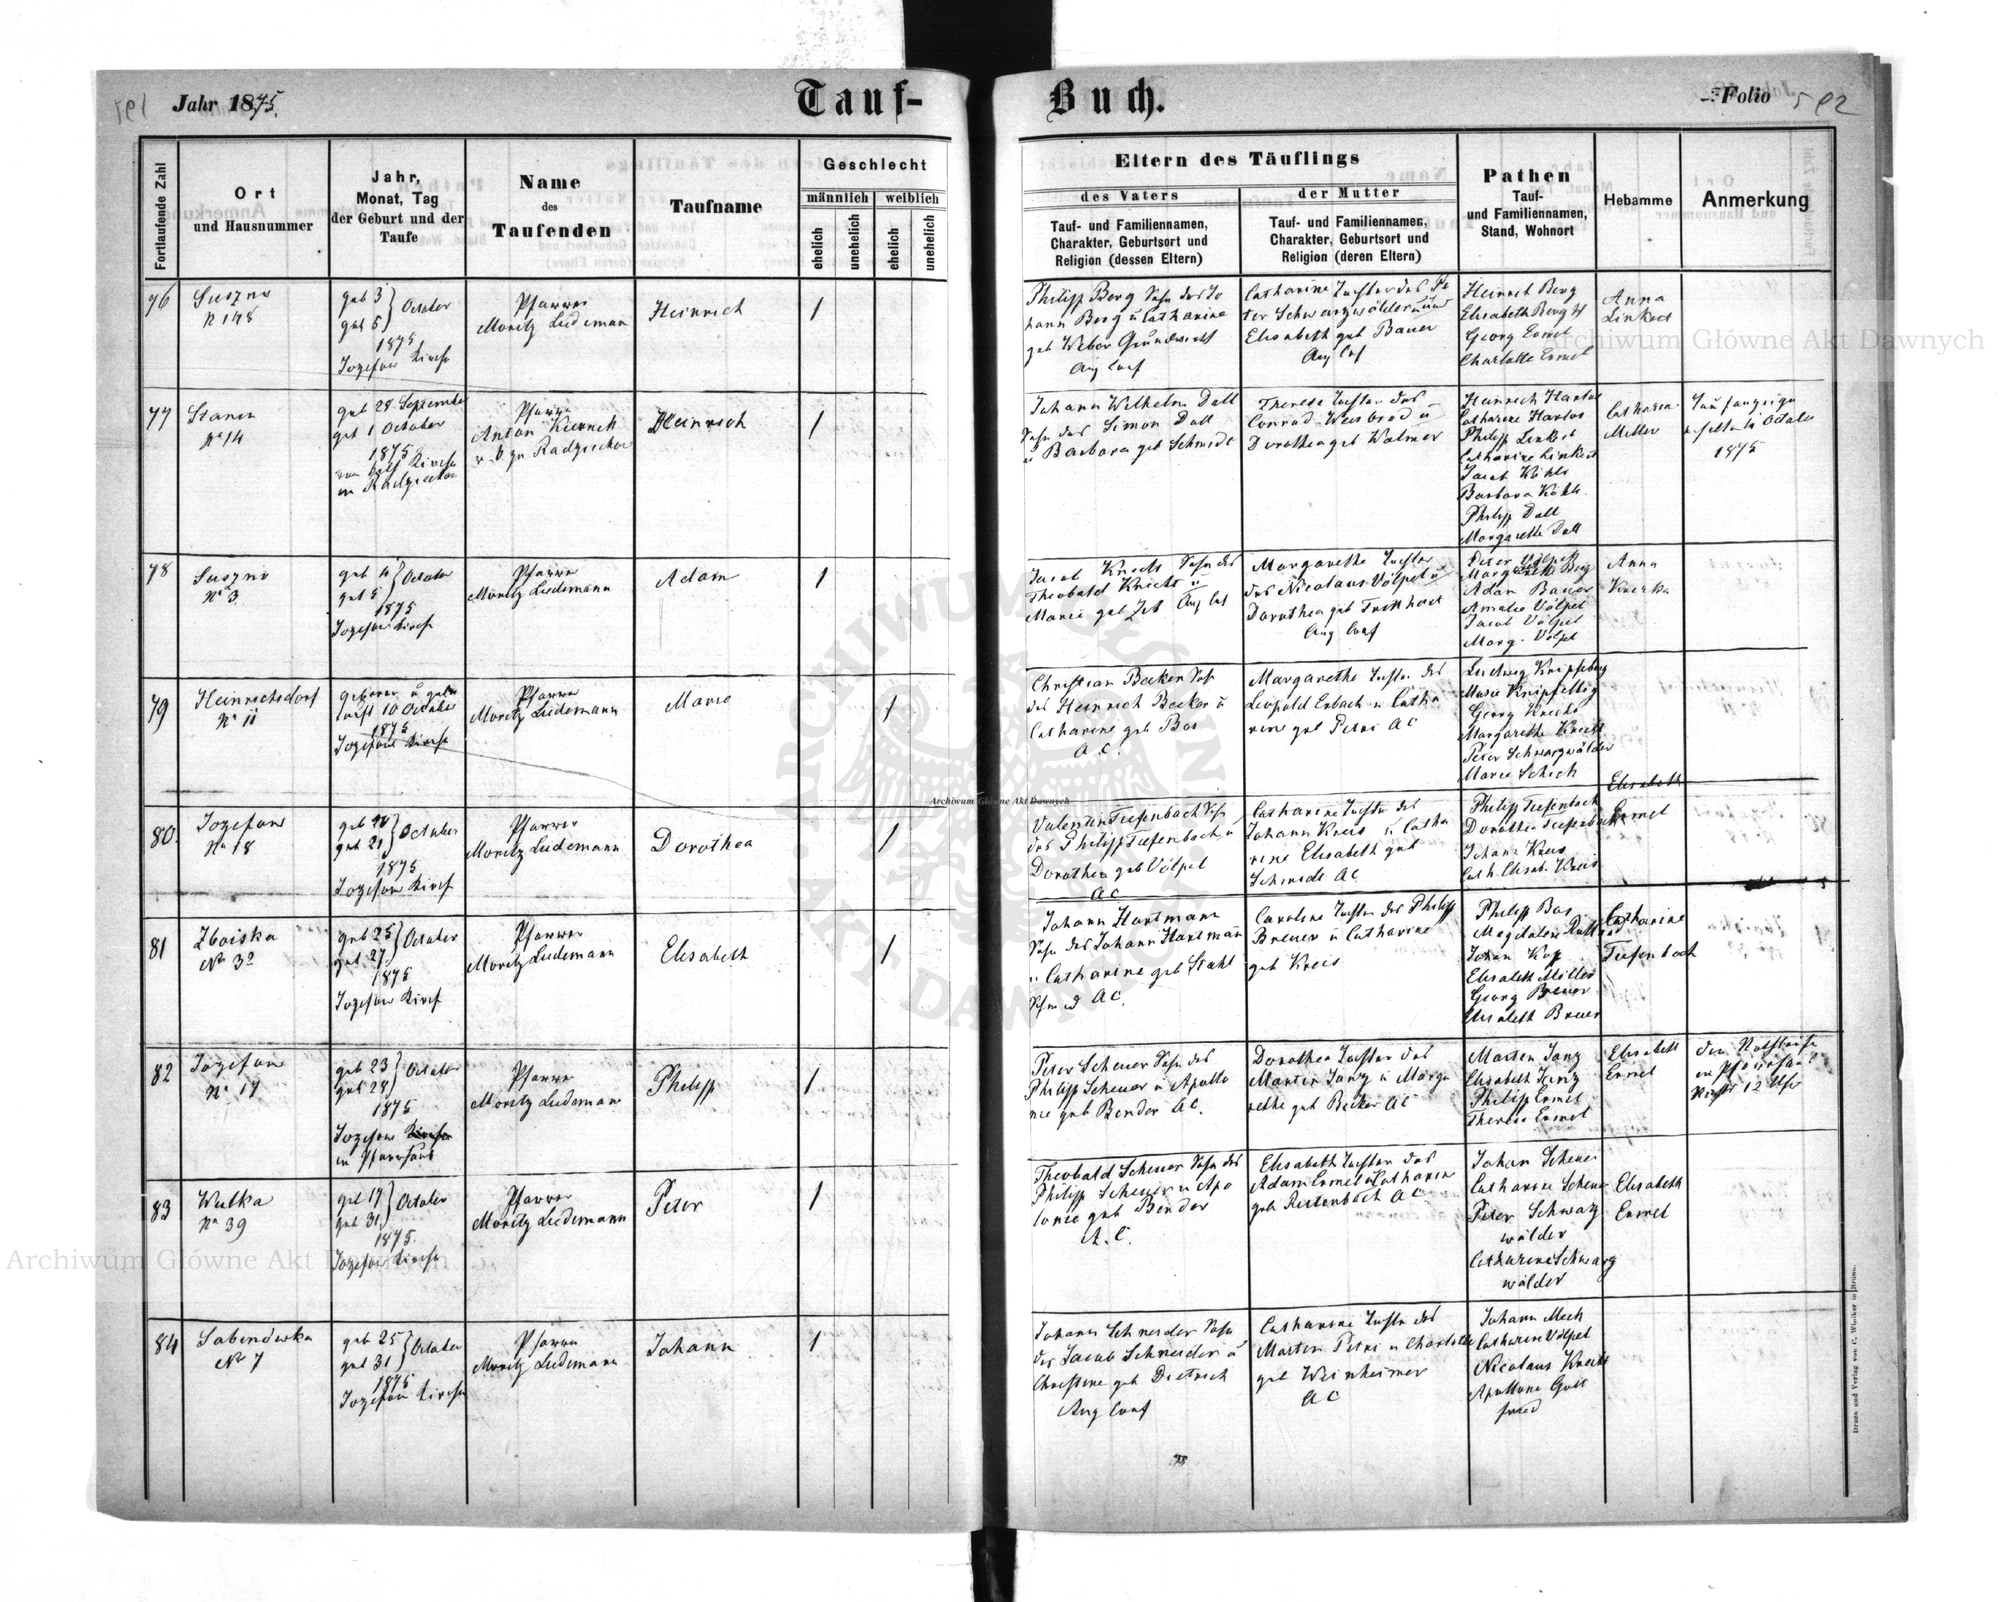 Jahr 1875.
Tauf-
Buch.
Folio 592
591
Fortlaufende Zahl
Ort
und Hausnummer
Jahr,
Monat, Tag
der Geburt und der
Taufe
Name
des
Taufenden
Taufname
Geschlecht
männlich
weiblich
ehelich
unehelich
ehelich
unehelich
Eltern des Täuflings
des Vaters
Tauf- und Familiennamen,
Charakter, Geburtsort und
Religion (dessen Eltern)
der Mutter
Tauf- und Familiennamen,
Charakter, Geburtsort und
Religion (deren Eltern)
Pathen
Tauf-
und Familiennamen,
Stand, Wohnort
Hebamme
Anmerkung
76
Suszno
N 148
geb 3
get 5 } October
1875
Jozefow Kirche
Pfarrer
Moritz Ludemann
Heinrich
1
Philipp Berg Sohn des Jo
hann Berg u Catharine
geb Weber Grundwirth
Aug Conf
Catharine Tochter des Pe
ter Schwarzwälder und
Elisabeth geb Bauer
Aug Conf
Heinrich Berg
Elisabeth Berg
Georg Ermel
Charlotte Ermel
Anna
Linked
77
Stanin
N 14
geb 28 September
get 1 October
1875
Kirche
in Radziechow
Pfarrer
Anton
Radziechow
Heinrich
1
Johann Wilhelm Dall
Sohn des Simon Dall
u Barbara geb Schmidt
Therese Tochter des
Conrad Weisbrod u
Dorothea geb Walmer
Heinrich Harlos
Catharine Harlos
Philipp Linkert
Catharine Linkert
Jacob Köhle
Barbara Köhle
Philipp Dall
Margarethe Dall
Catharina
Miller
Taufanzeige
October
1875
78
Suszno
N 3
geb 4
get 5 } October
1875
Jozefow Kirche
Pfarrer
Moritz Ludemann
Adam
1
Jacob Knecht Sohn des
Theobald Knecht u
Marie geb Aug Conf
Margarethe Tochter
des Nicolaus Völpel u
Dorothea geb
Aug Conf
Peter Völpel
Margarethe Berg
Adam Bauer
Amalie Völpel
Jacob Völpel
Marg. Völpel
Anna
79
Heinrichsdorf
N 11
geboren u getau
tauft 10 October
1875
Jozefow Kirche
Pfarrer
Moritz Ludemann
Marie
1
Christian Becker Sohn
des Heinrich Becker u
Catharine geb Bos
A.C.
Margarethe Tochter des
Leopold Erbach u Catha
rine geb Petri AC
Ludwig Knipfelberg
Marie
Georg Knecht
Margarethe Knecht
Peter Schwarzwälder
Marie Schick
80.
Jozefow
No 18
geb
get 21 } October
1875
Jozefow Kirche
Pfarrer
Moritz Ludemann
Dorothea
1
Valentin Tiefenbach Sohn
des Philipp Tiefenbach u
Dorothea geb Völpel
AC
Catharine Tochter des
Johann Kreis u Catha
rine Elisabeth geb
Schmidt AC
Philipp Tiefenbach
Dorothea Tiefenbach
Johann Kreis
Cath. Elisab. Kreis
Elisabeth
Ermel
81
Zboiska
No 32
geb 25
get 27 } October
1875
Jozefow Kirche
Pfarrer
Moritz Ludemann
Elisabeth
1
Johann Hartmann
Sohn des Johann Hartmann
u Catharine geb Stahl
Schmid AC.
Caroline Tochter des Philipp
Breuer u Catharine
geb Kreis
Philipp Bos
Magdalene
Johann Kopp
Elisabeth Müller
Georg Breuer
Elisabeth Breuer
Catharine
Tiefenbach
82
Jozefow
N 17
geb 23
get 28 } October
1875
Jozefow Kirche
im Pfarrhaus
Pfarrer
Moritz Ludemann
Philipp
1
Peter Scheuer Sohn des
Philipp Scheuer u Apollo
nie geb Bender AC.
Dorothea Tochter des
Martin Janz u Marga
rethe geb Becker AC
Martin Janz
Elisabeth Janz
Philipp Ermel
Therese Ermel
Elisabeth
Ermel
die Nothtaufe
im Pfarrhaus
Nachts 12 Uhr
83
Wulka
No 39
geb 17
get 31 } October
1875
Jozefow Kirche
Pfarrer
Moritz Ludemann
Peter
1
Theobald Scheuer Sohn des
Philipp Scheuer u Apo
lonie geb Bender
A.C.
Elisabeth Tochter des
Adam Ermel u Catharine
geb Reitenbach AC
Johan Scheuer
Catharine Scheuer
Peter Schwarz
wälder
Catharine Schwarz
wälder
Elisabeth
Ermel
84
Sabinowka
No 7
geb 25
get 31 } October
1875
Jozefow Kirche
Pfarrer
Moritz Ludemann
Johann
1
Johann Schneider Sohn
des Jacob Schneider u
Christine geb Dietrich
Aug Conf
Catharine Tochter des
Martin Petri u Charlotte
geb Weinheimer
AC
Johann Mech
Catharine Völpel
Nicolaus Knecht
Apollonie Gott
fried
Druck und Verlag von C. Winiker in Brünn.
Archiwum Główne Akt Dawnych
Archiwum Główne Akt Dawnych
Archiwum Główne Akt Dawnych
ARCHIWUM GŁÓWNE AKT DAWNYCH